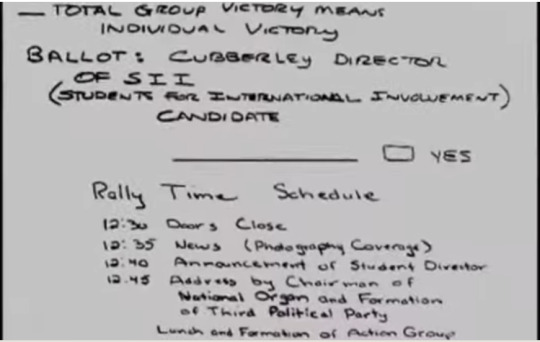 — TOTAL GROUP VICTORY MEANS
INDIVIDUAL VICTORY
BALLOT: CUBBERLEY DIRECTOR
OF SII
(STUDENTS FOR INTERNATIONAL INVOLVEMENT)
CANDIDATE
YES
Rally Time Schedule
12:30 Doors Close
12:35 News (Photography Coverage)
12:40 Announcement of Student Director
12.45 Address by Chairman of
National Organ and Formation
of Third Political Party
Lunch and Formation of Action Group